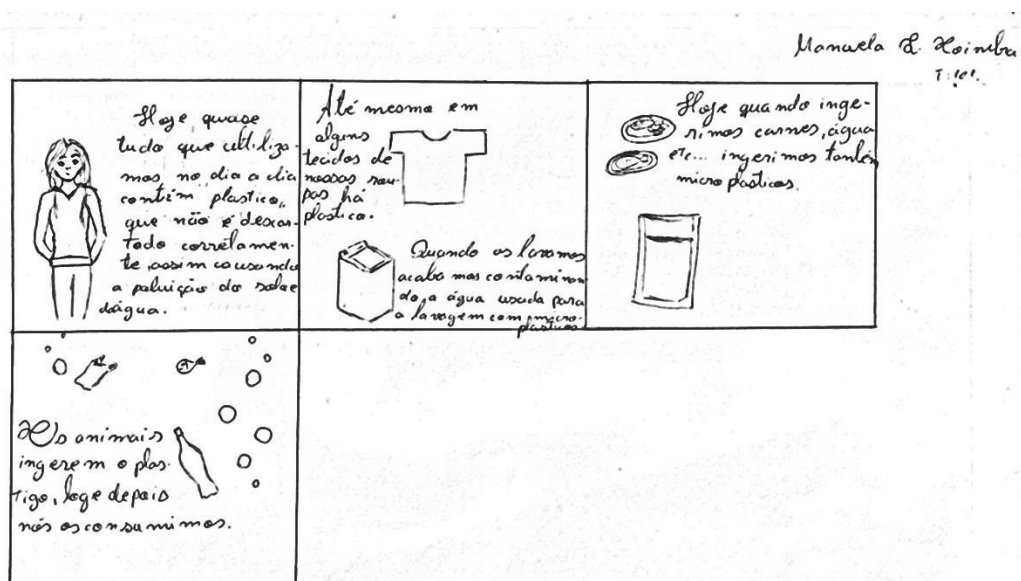 Manuela
Hoje quase
tudo que utiliza-
mos no dia a dia
contém plastico,
que não é descar-
tado corretamen-
te, assim causando
a poluição do solo e
dágua.
Até mesmo em
alguns
tecidos de
nossas rou-
pas há
plástico.
Quando os lavamos
acabamos contaminan
do, a água usada para
a lavagem com micro-
plásticos
Hoje quando inge-
rimos carnes, água
etc... ingerimos também
micro plasticos.
Os animais
ingerem o plas-
tigo, loge depois
nós os consumimos.